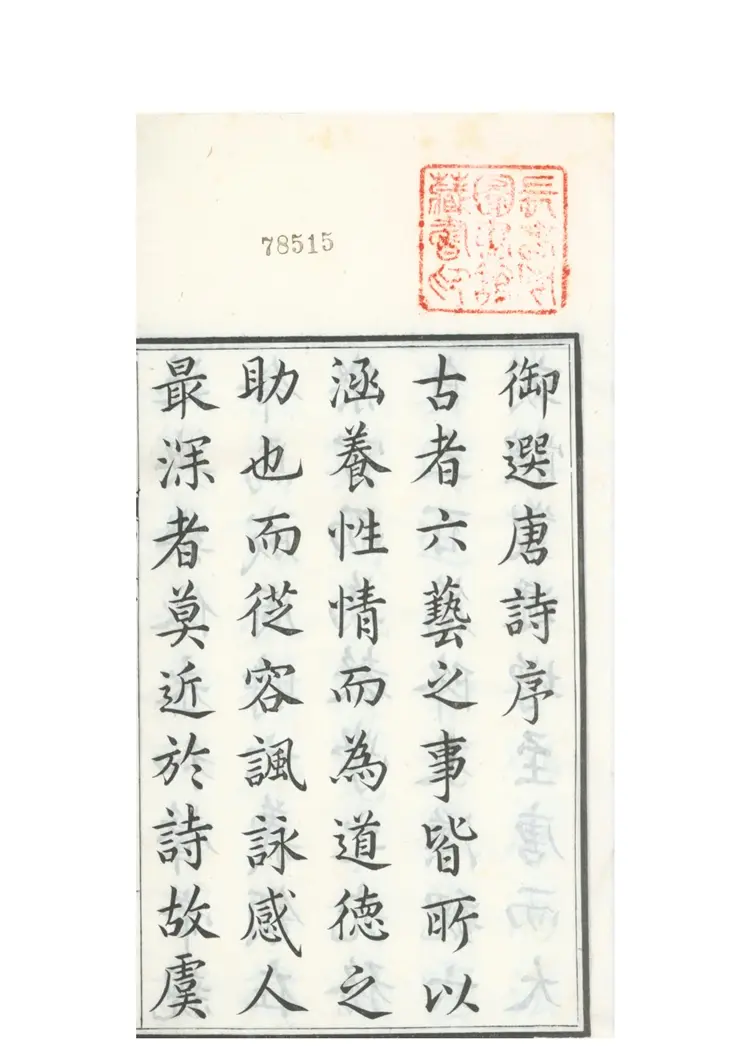 78515
御選唐詩序
古者六藝之事皆所以
涵養性情而為道德之
助也而從容諷詠感人
最深者莫近於詩故虞